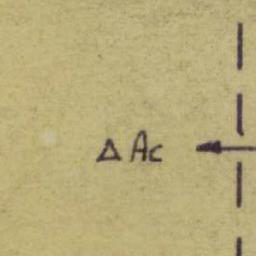 Δ Ac